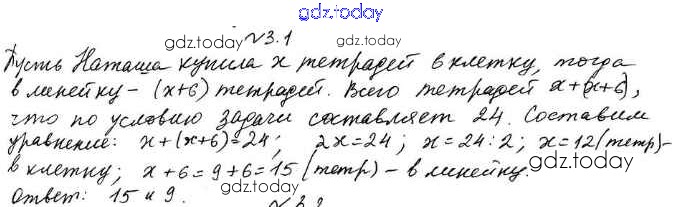 gdz.today
№3.1
gdz.today gdz.today
Пусть Наташа купила x тетрадей в клетку, тогда
в линейку - (x+6) тетрадей. Всего тетрадей x+(x+6),
gdz.today
что по условию задачи составляет 24. Составим
уравнение: x+(x+6)=24; 2x=24; x=24:2; x=12 (тетр)-
в клетку; x+6=9+6=15 (тетр) - в линейку.
gdz.today gdz.today
Ответ: 15 и 9.
gdz.today